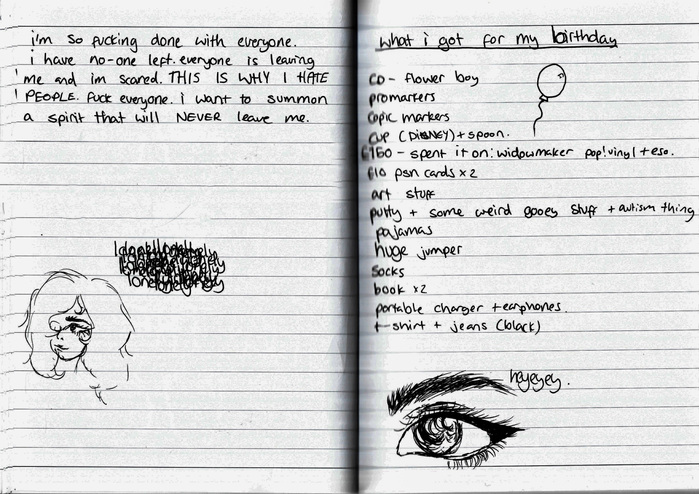 i'm so fucking done with everyone.
i have no-one left. everyone is leaving
me and im scared. THIS IS WHY I HATE
PEOPLE. fuck everyone. i want to summon
a spirit that will NEVER leave me.
lonely lonely
lonely lonely
lonely lonely
what i got for my birthday
CD - flower boy
promarkers
copic markers
cup (DISNEY) + spoon.
£150 - spent it on: widowmaker pop! vinyl + eso.
£10 psn cards x2
art stuff
putty + some weird gooey stuff + autism thing
pajamas
huge jumper
socks
book x2
portable charger + earphones.
t-shirt + jeans (black)
heyeyey.